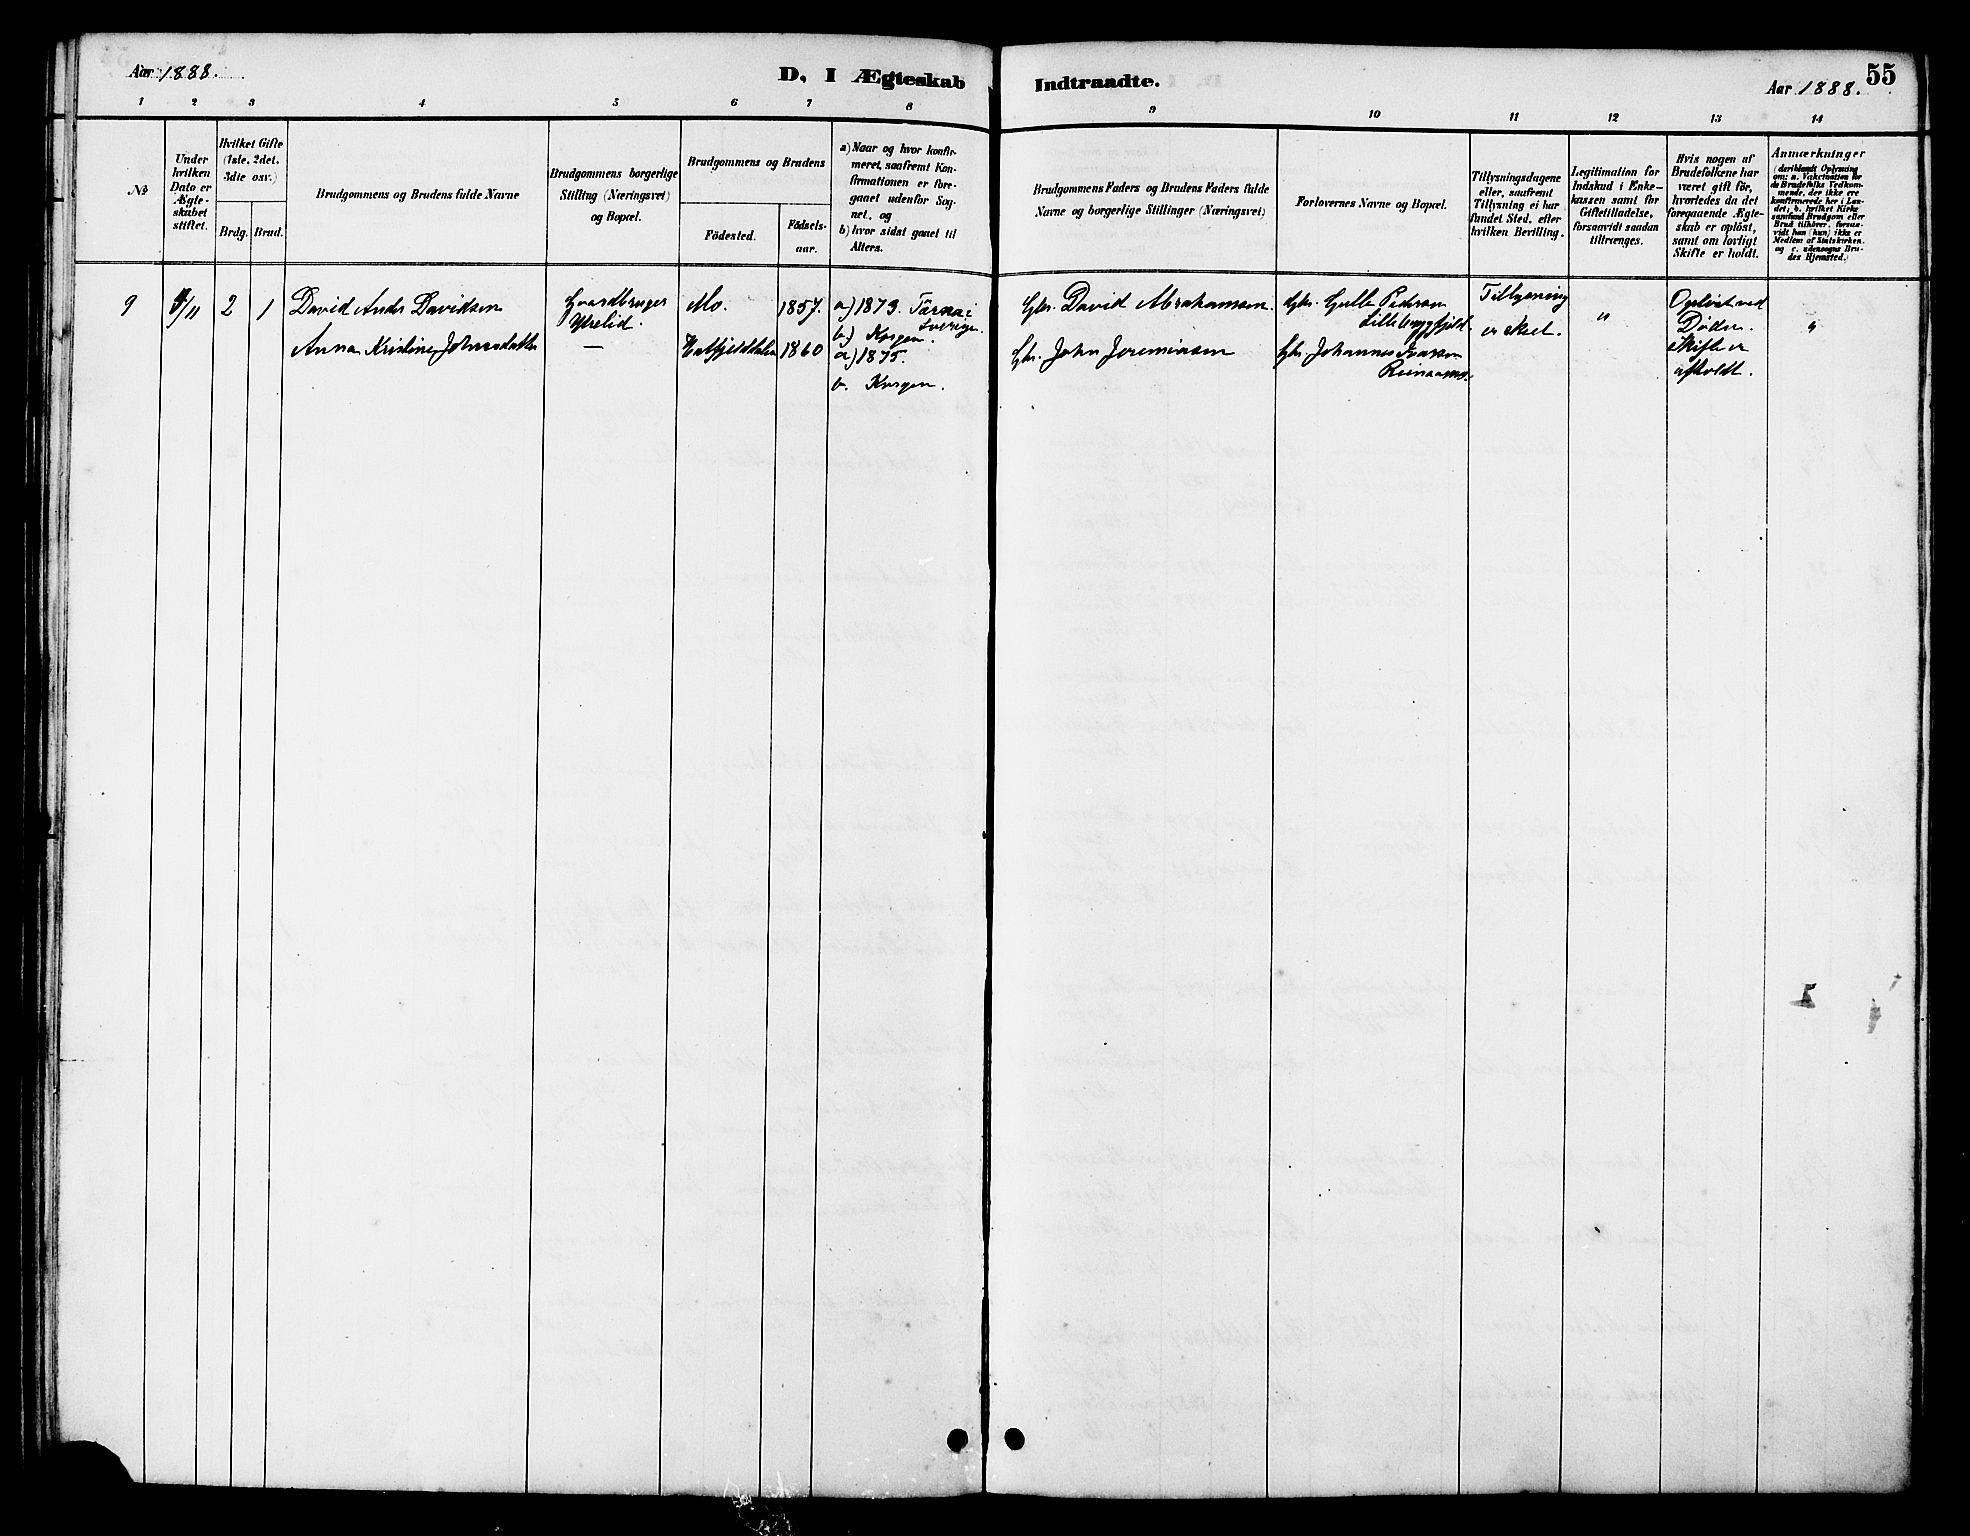 Aar 1888.
D, I Ægteskab
Indtraadte.
55
Aar 1888.
1 2 3 4 5 6 7 8
9 10 11 12 13 14
№
Under hvilken Dato er Ægte-skabet stiftet.
Hvilket Gifte (1ste, 2det, 3dte osv.)
Brdg. Brud.
Brudgommens og Brudens fulde Navne
Brudgommens borgerlige Stilling (Næringsvei) og Bopæl.
Brudgommens og Brudens
Födested.
Födsels-aar.
a) Naar og hvor konfir-
meret, saafremt Kon-
firmationen er fore-
gaaet udenfor Sog-
net, og
b) hvor sidst gaaet til
Alters.
Brudgommens Faders og Brudens Faders fulde
Navne og borgerlige Stillinger (Næringsvei)
Forlovernes Navne og Bopæl.
Tillysningsdagene
eller, saafremt
Tillysning ei har
fundet Sted, efter
hvilken Bevilling.
Legitimation for
Indskud i Enke-
kassen samt for
Giftetilladelse,
forsaavidt saadan
tiltrænges.
Hvis nogen af
Brudefolkene har
været gift för,
hvorledes da det
foregaaende Ægte-
skab er oplöst,
samt om lovligt
Skifte er holdt.
Anmærkninger
(deriblandt Oplysning
om: a. Vakcination for
de Brudefolks Vedkom-
mende, der ikke ere
konfirmerede her i Lan-
det; b. hvilket Kirke
samfund Brudgom eller
Brud tilhører, forsaa-
vidt han (hun) ikke er
Medlem af Statskirken,
og c. udensogns Bru-
des Hjemsted.)
9 /11 2 1 David Andr Davidsen
Gaardbruger
Ytrelid.
Mo. 1857. a) 1873. Tärna i
Sverige.
b) Korgen.
Anna Kristine Johnsdatter
—
Hatfjelddalen 1860 a) 1875.
b. Korgen.
Gbr. David Abrahamson.
Gbr. Gulle Pedersen
Lillebryggfjeld.
Tillysning
er skeet.
"
Opløst ved
Døden.
Skifte er
afholdt.
"
Gbr. John Jeremiasen
Gbr. Johannes Ivarsen